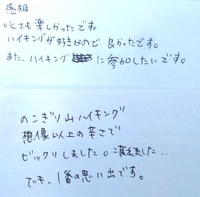 感想
とても楽しかったです。
ハイキングが好きなので 良かったです。
また、ハイキング に参加したいです。
のこぎり山ハイキング
想像以上の辛さで
ビックリしました。
でも、1番の思い出です。